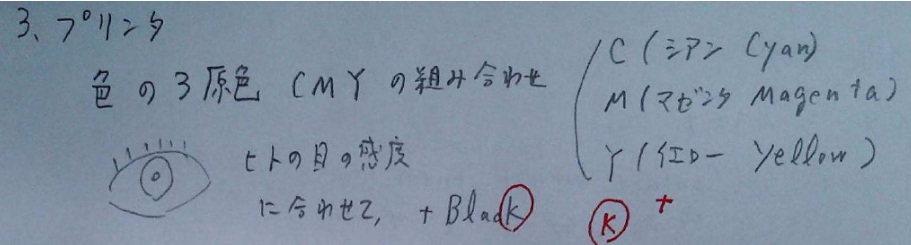 3、プリンタ
色の3原色 CMYの組み合わせ
C (シアン Cyan)
M (マゼンタ Magenta)
Y (イエロー Yellow)
ヒトの目の感度
に合わせて, + Black
K +